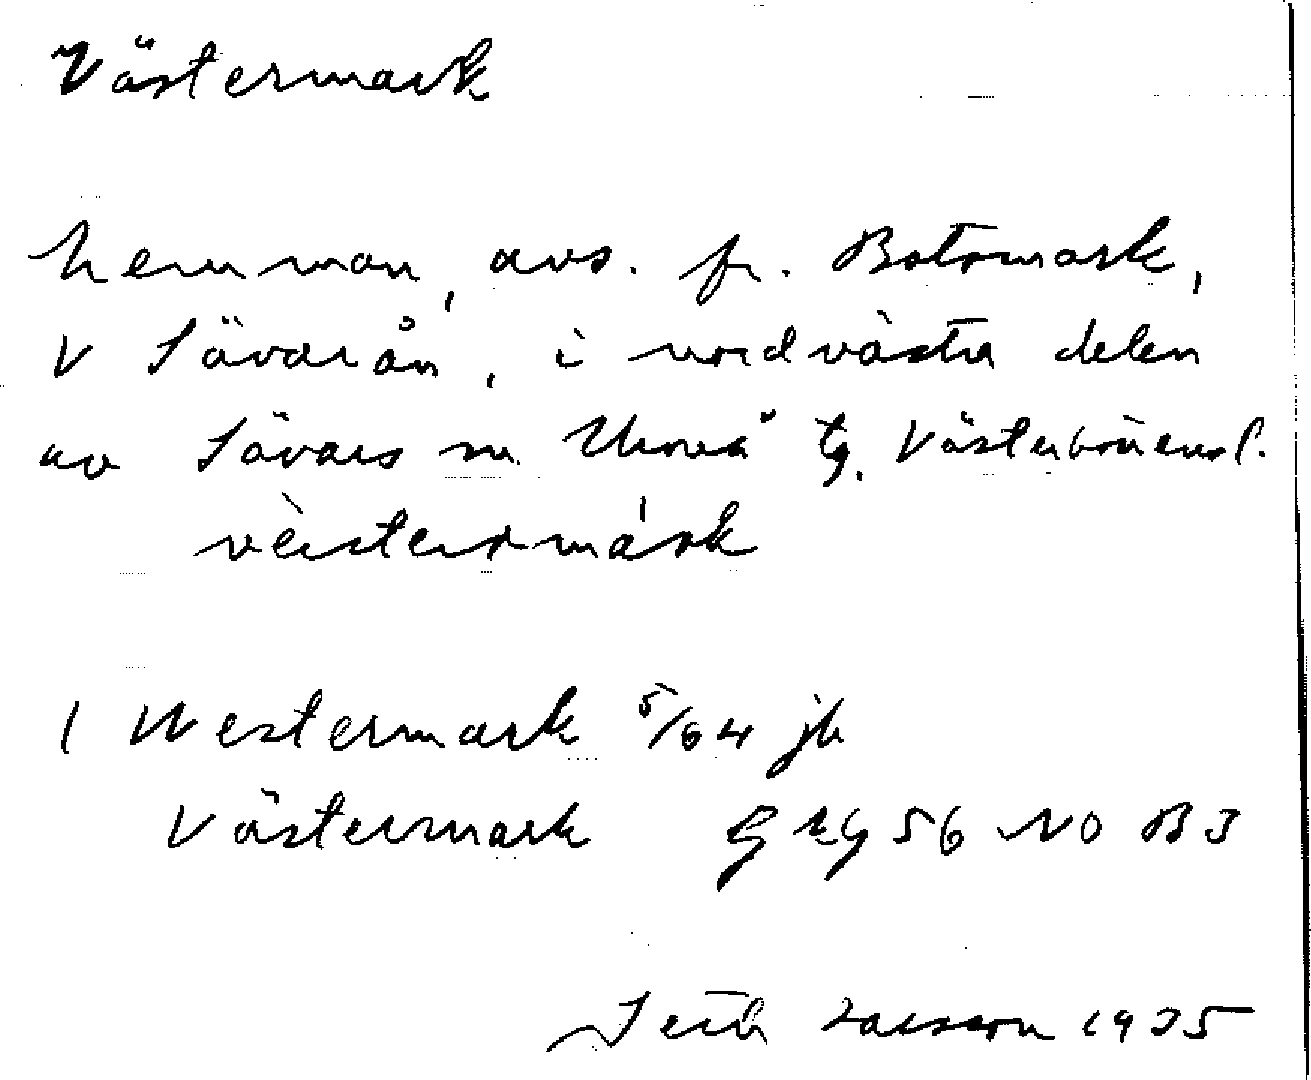 Västermark
hemman, avs. fr. Botsmark,
V Sävarån, i nordvästra delen
av Sävars sn. Umeå tg. Västerbottensl.
vèstermárk
1 Westermark 5/64 jb
Västermark GKG 56 NO B3
Larsson 1935